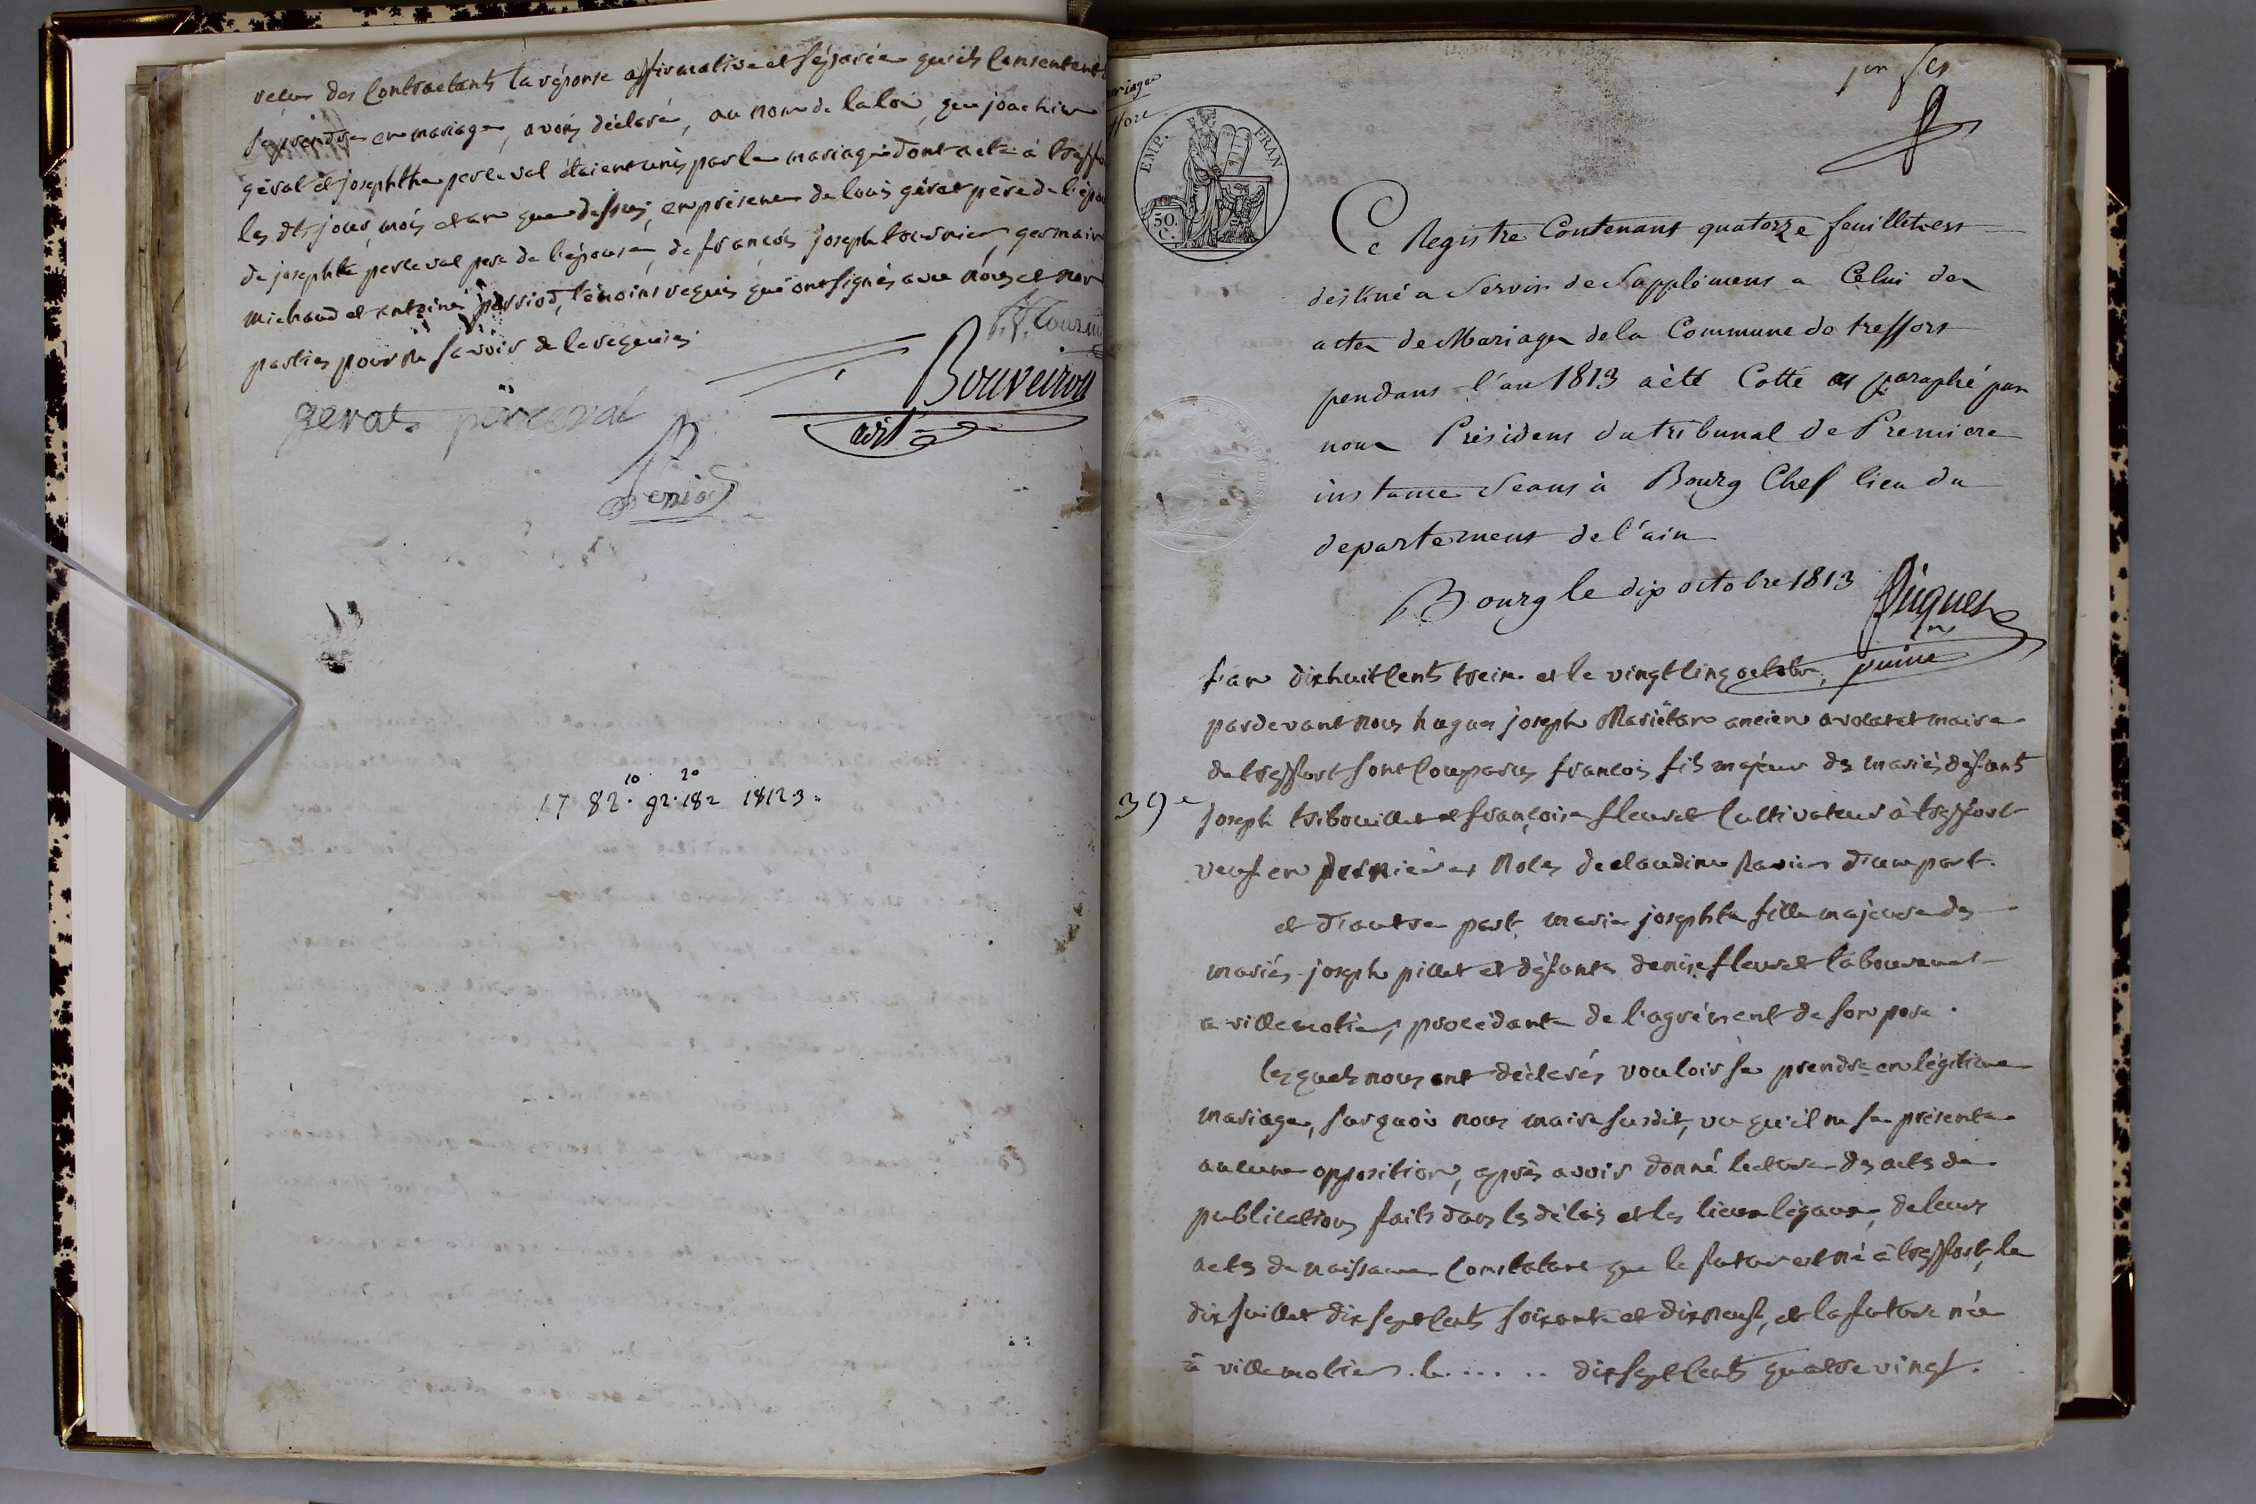 reçu des Contractants la réponse affirmative et séparée qu'ils Consentent
se prendre en mariage, avons déclaré, au nom de la loi, que joachim
gérat et josephthe perceval étaient unis par le mariage dont acte à treffort
les dts jour, mois et an que dessus, en présence de louis gérat père de l'époux
de josephte perceval pere de l'épouse, de françois joseph tournier, germain
michaud et antoine perriod, témoins requis qui ont signés avec nous et non
parties pour ne savoir de le requis
gerat perceval
Bouveiron
adjt
Period
10 20
17 82. 92. 182 18123.
mariages
1er fet
EMP. FRAN
50 C.
Ce Registre Contenant quatorze feuillets est
destiné a Servir de Supplément a Celui des
actes de Mariages de la Commune de treffort
pendant l'an 1813 a été Cotté et paraphé par
nous Président du tribunal de Premiere
instance Séant à Bourg Chef lieu du
departement de l'ain
Bourg le dix octobre 1813
Piquet
puiné
l'an dix huit Cents treize et le vingt cinq octobre,
pardevant nous hugues joseph Mariétan ancien avocat et maire
de treffort sont Comparus françois fils majeur des mariés défunts
39e
joseph tribouillet et françoise fleuret Cultivateur à treffort
veuf en dernières Noces de claudine Ravier d'une part.
et d'autre part marie josephte fille majeure des
mariés joseph pillet et défunte denise fleuret laboureurs
a villemotier, procédante de l'agrément de son pere.
lesquels nous ont déclarés vouloir se prendre en légitime
mariage, surquoi nous maire susdit, vu qu'il ne se présente
aucune opposition, après avoir donné lecture des actes de
publications faits dans les délais et les lieux légaux, de leurs
actes de naissance Constatant que le futur est né à treffort, le
dix juillet dix sept Cents soixante et dix neuf, et la future née
à villemotier le ..... dix sept Cents quatre vingt.